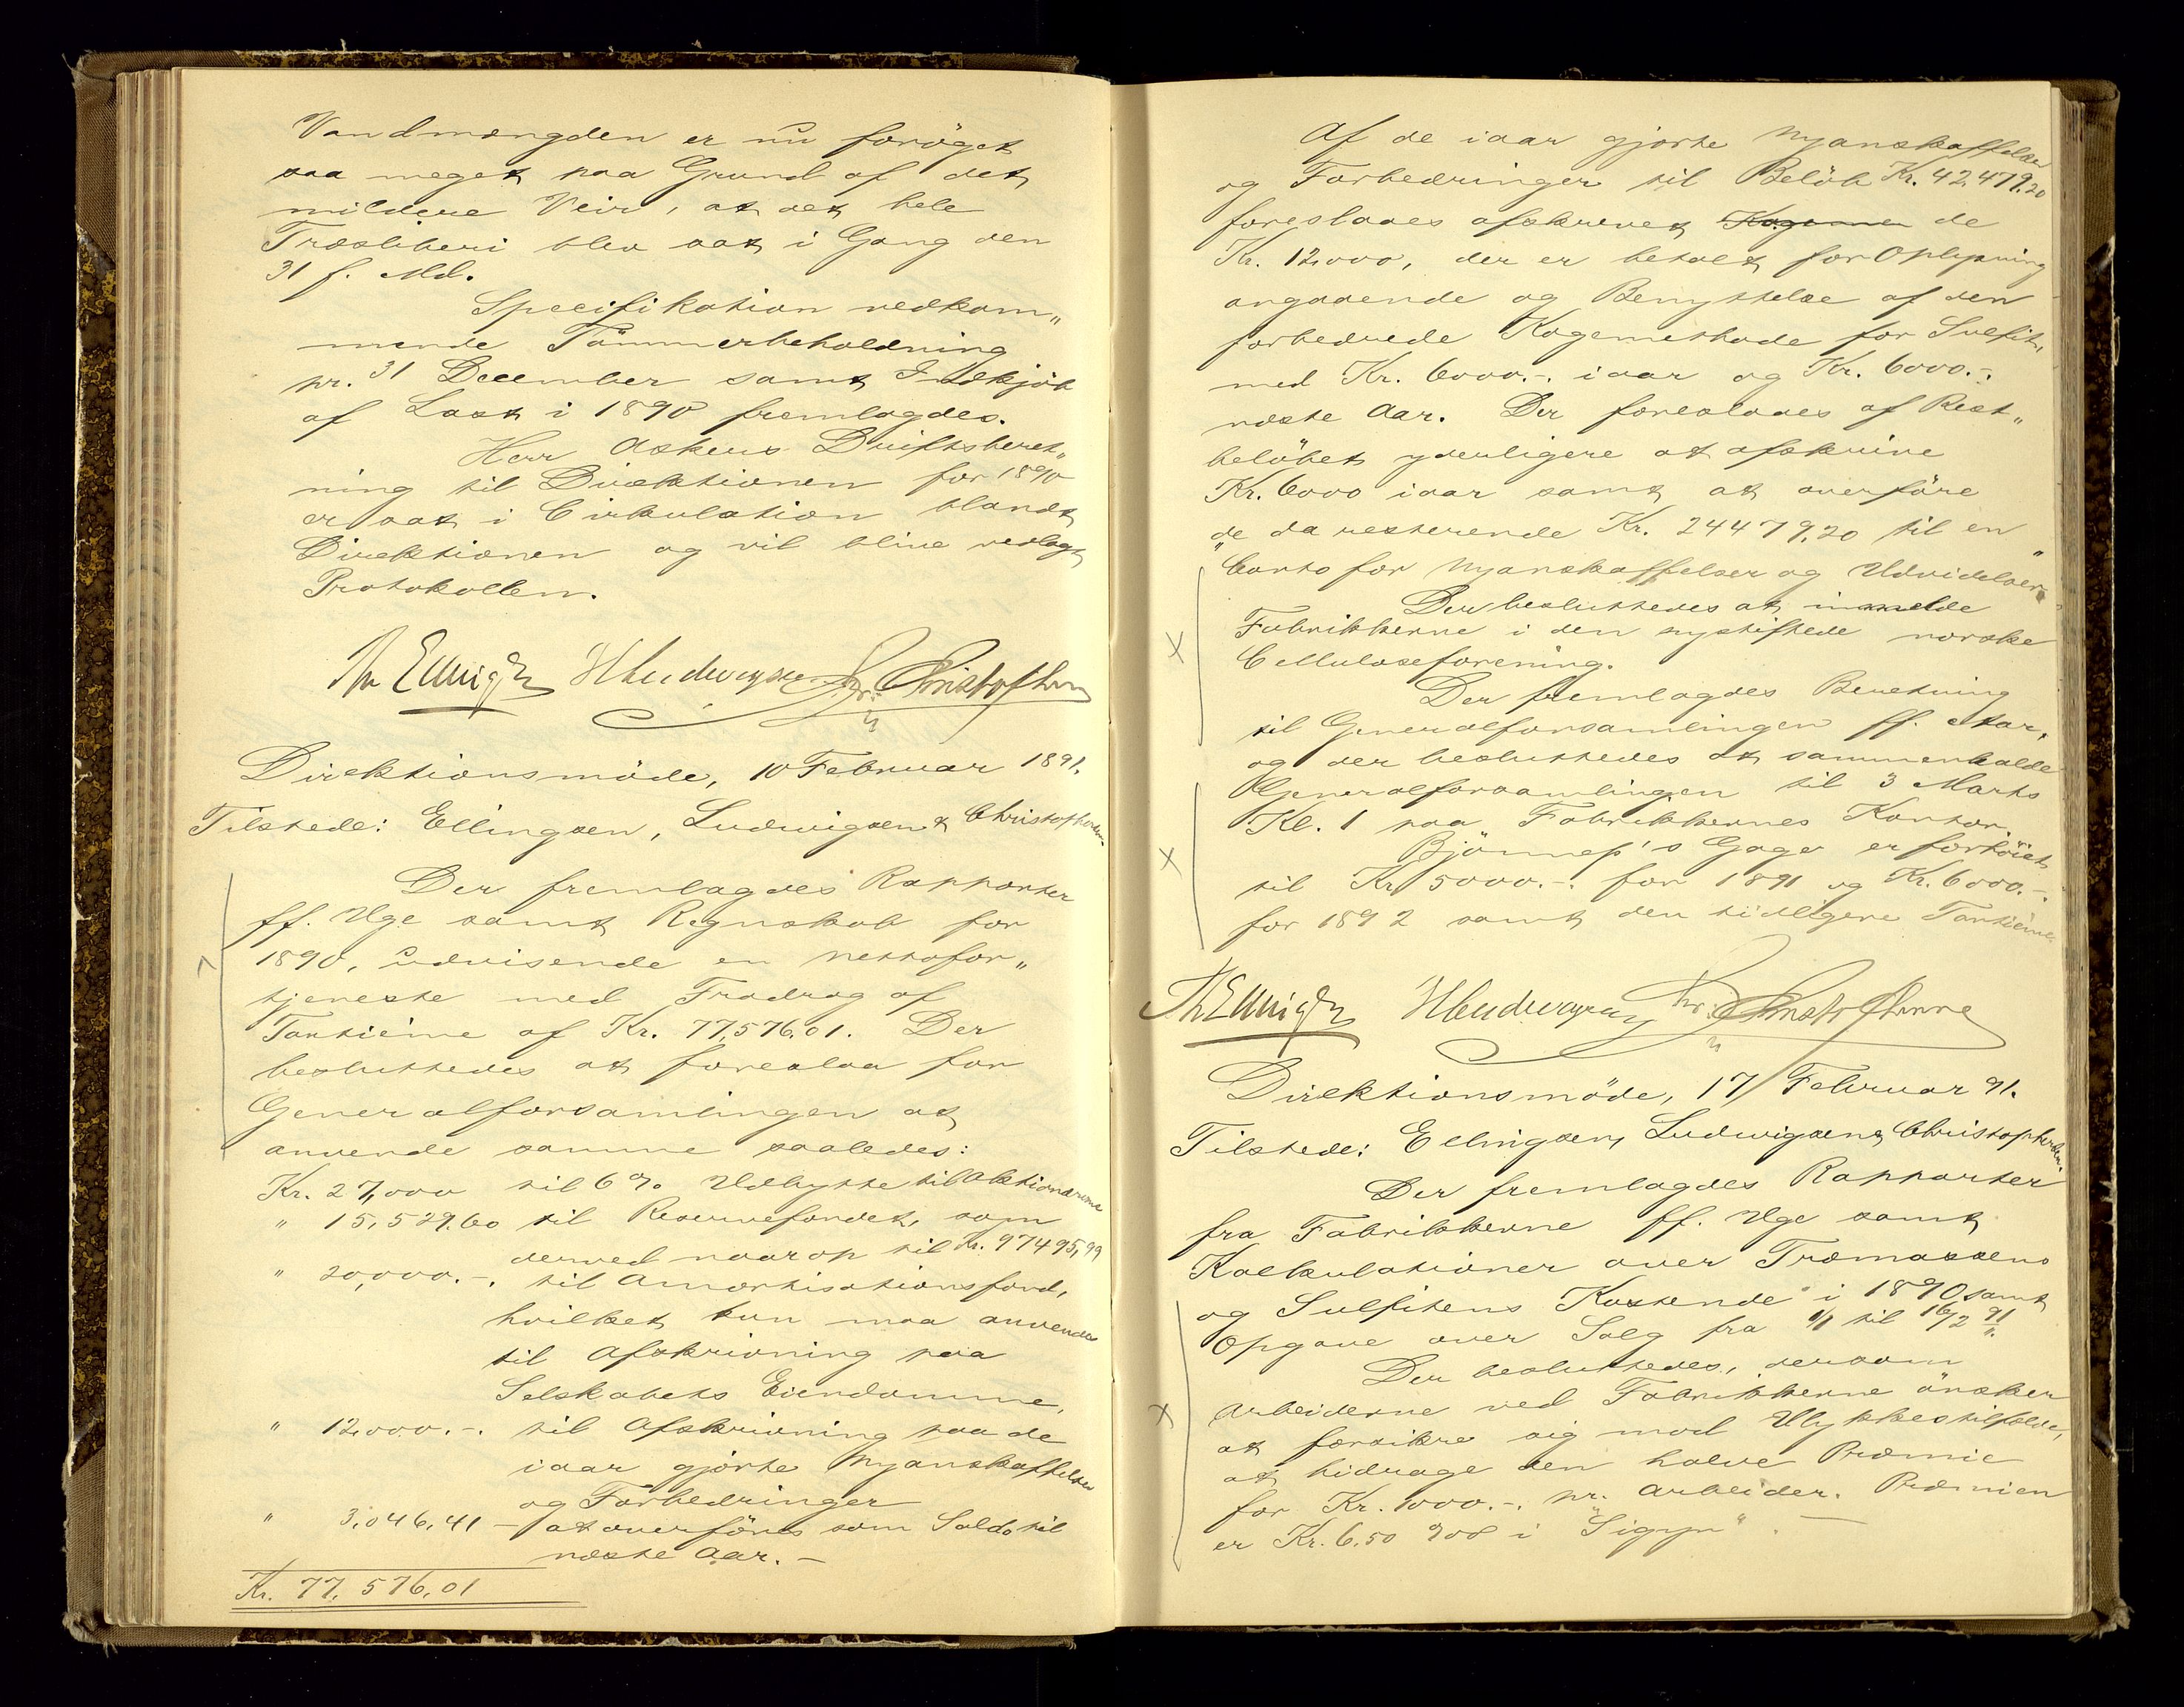 Vandmængden er nu forøget
saa meget paa Grund af det
mildere Veir, at det hele
Træsliberi blev sat i Gang den
31 f. Md.
Specifikation vedkom„
mende Tömmerbeholdning
pr. 31 December samt Indkjöb
af Last i 1890 fremlagdes.
Herr Askers Driftsberet„
ning til Direktionen for 1890
er sat i Cirkulation blandt
Direktionen og vil blive vedlagt
Protokollen.
Th Ellingsen HLudwigsen Chr. Christophersen
Direktionsmöde, 10 Februar 1891.
Tilstede: Ellingsen, Ludwigsen & Christophersen
Der fremlagdes Rapporter
ff. Uge samt Regnskab for
1890, udvisende en Nettofor„
tjeneste med Fradrag af
Tantième af Kr. 77,576.01. Der
besluttedes at foreslaa for
Generalforsamlingen at
anvende samme saaledes:
Kr. 27,000 til 6% Udbytte til Aktionærerne
" 15,529.60 til Reservefondet, som
derved naar op til Kr. 97495,99
" 20,000.-. til Amortisationsfond,
hvilket kun maa anvendes
til Afskrivning paa
Selskabets Eiendomme,
" 12,000.-. til Afskrivning paa de
iaar gjorte Nyanskaffelser
og Forbedringer
" 3,046,41 - at overföres som Saldo til
næste Aar. -
Kr. 77,576,01
Af de iaar gjorte Nyanskaffelser
og Forbedringer til Belöb Kr. 42,479.20
foreslaaes afskrevet Kogemen de
Kr. 12,000, der er betalt for Oplysning
angaaende og Benyttelse af den
forbedrede Kogemethode for Sulfit,
med Kr. 6000.-. iaar og Kr. 6000.-.
næste Aar. Der foreslaaes af Rest„
belöbet yderligere at afskrive
Kr. 6000 iaar samt at overföre
de da resterende Kr. 24479.20 til en
"Conto for Nyanskaffelser og Udvidelser".
Der besluttedes at indmelde
Fabrikkerne i den nystiftede norske
Celluloseforening.
Der fremlagdes Beretning
til Generalforsamlingen ff. Aar,
og der besluttedes at sammenkalde
Generalforsamlingen til 3 Marts
Kl. 1 paa Fabrikkernes Kontor.
Björnnes's Gage er forhöiet
til Kr 5000.-. for 1891 og Kr. 6000.-.
for 1892 samt den tidligere Tantième
Th Ellingsen HLudwigsen Chr. Christophersen
Direktionsmöde, 17 Februar 91.
Tilstede: Ellingsen, Ludwigsen & Christophersen.
Der fremlagdes Rapporter
fra Fabrikkerne ff. Uge samt
Kalkulationer over Træmassens
og Sulfitens Kostende i 1890 samt
Opgave over Salg fra 1/1 til 16/2 91.
Der besluttedes, dersom
Arbeiderne ved Fabrikkerne önsker
at forsikre sig mod Ulykkestilfælde,
at bidrage den halve Præmie
for Kr. 1000.-. pr. Arbeider. Præmien
er Kr. 6.50 %oo i "Sigyn". -